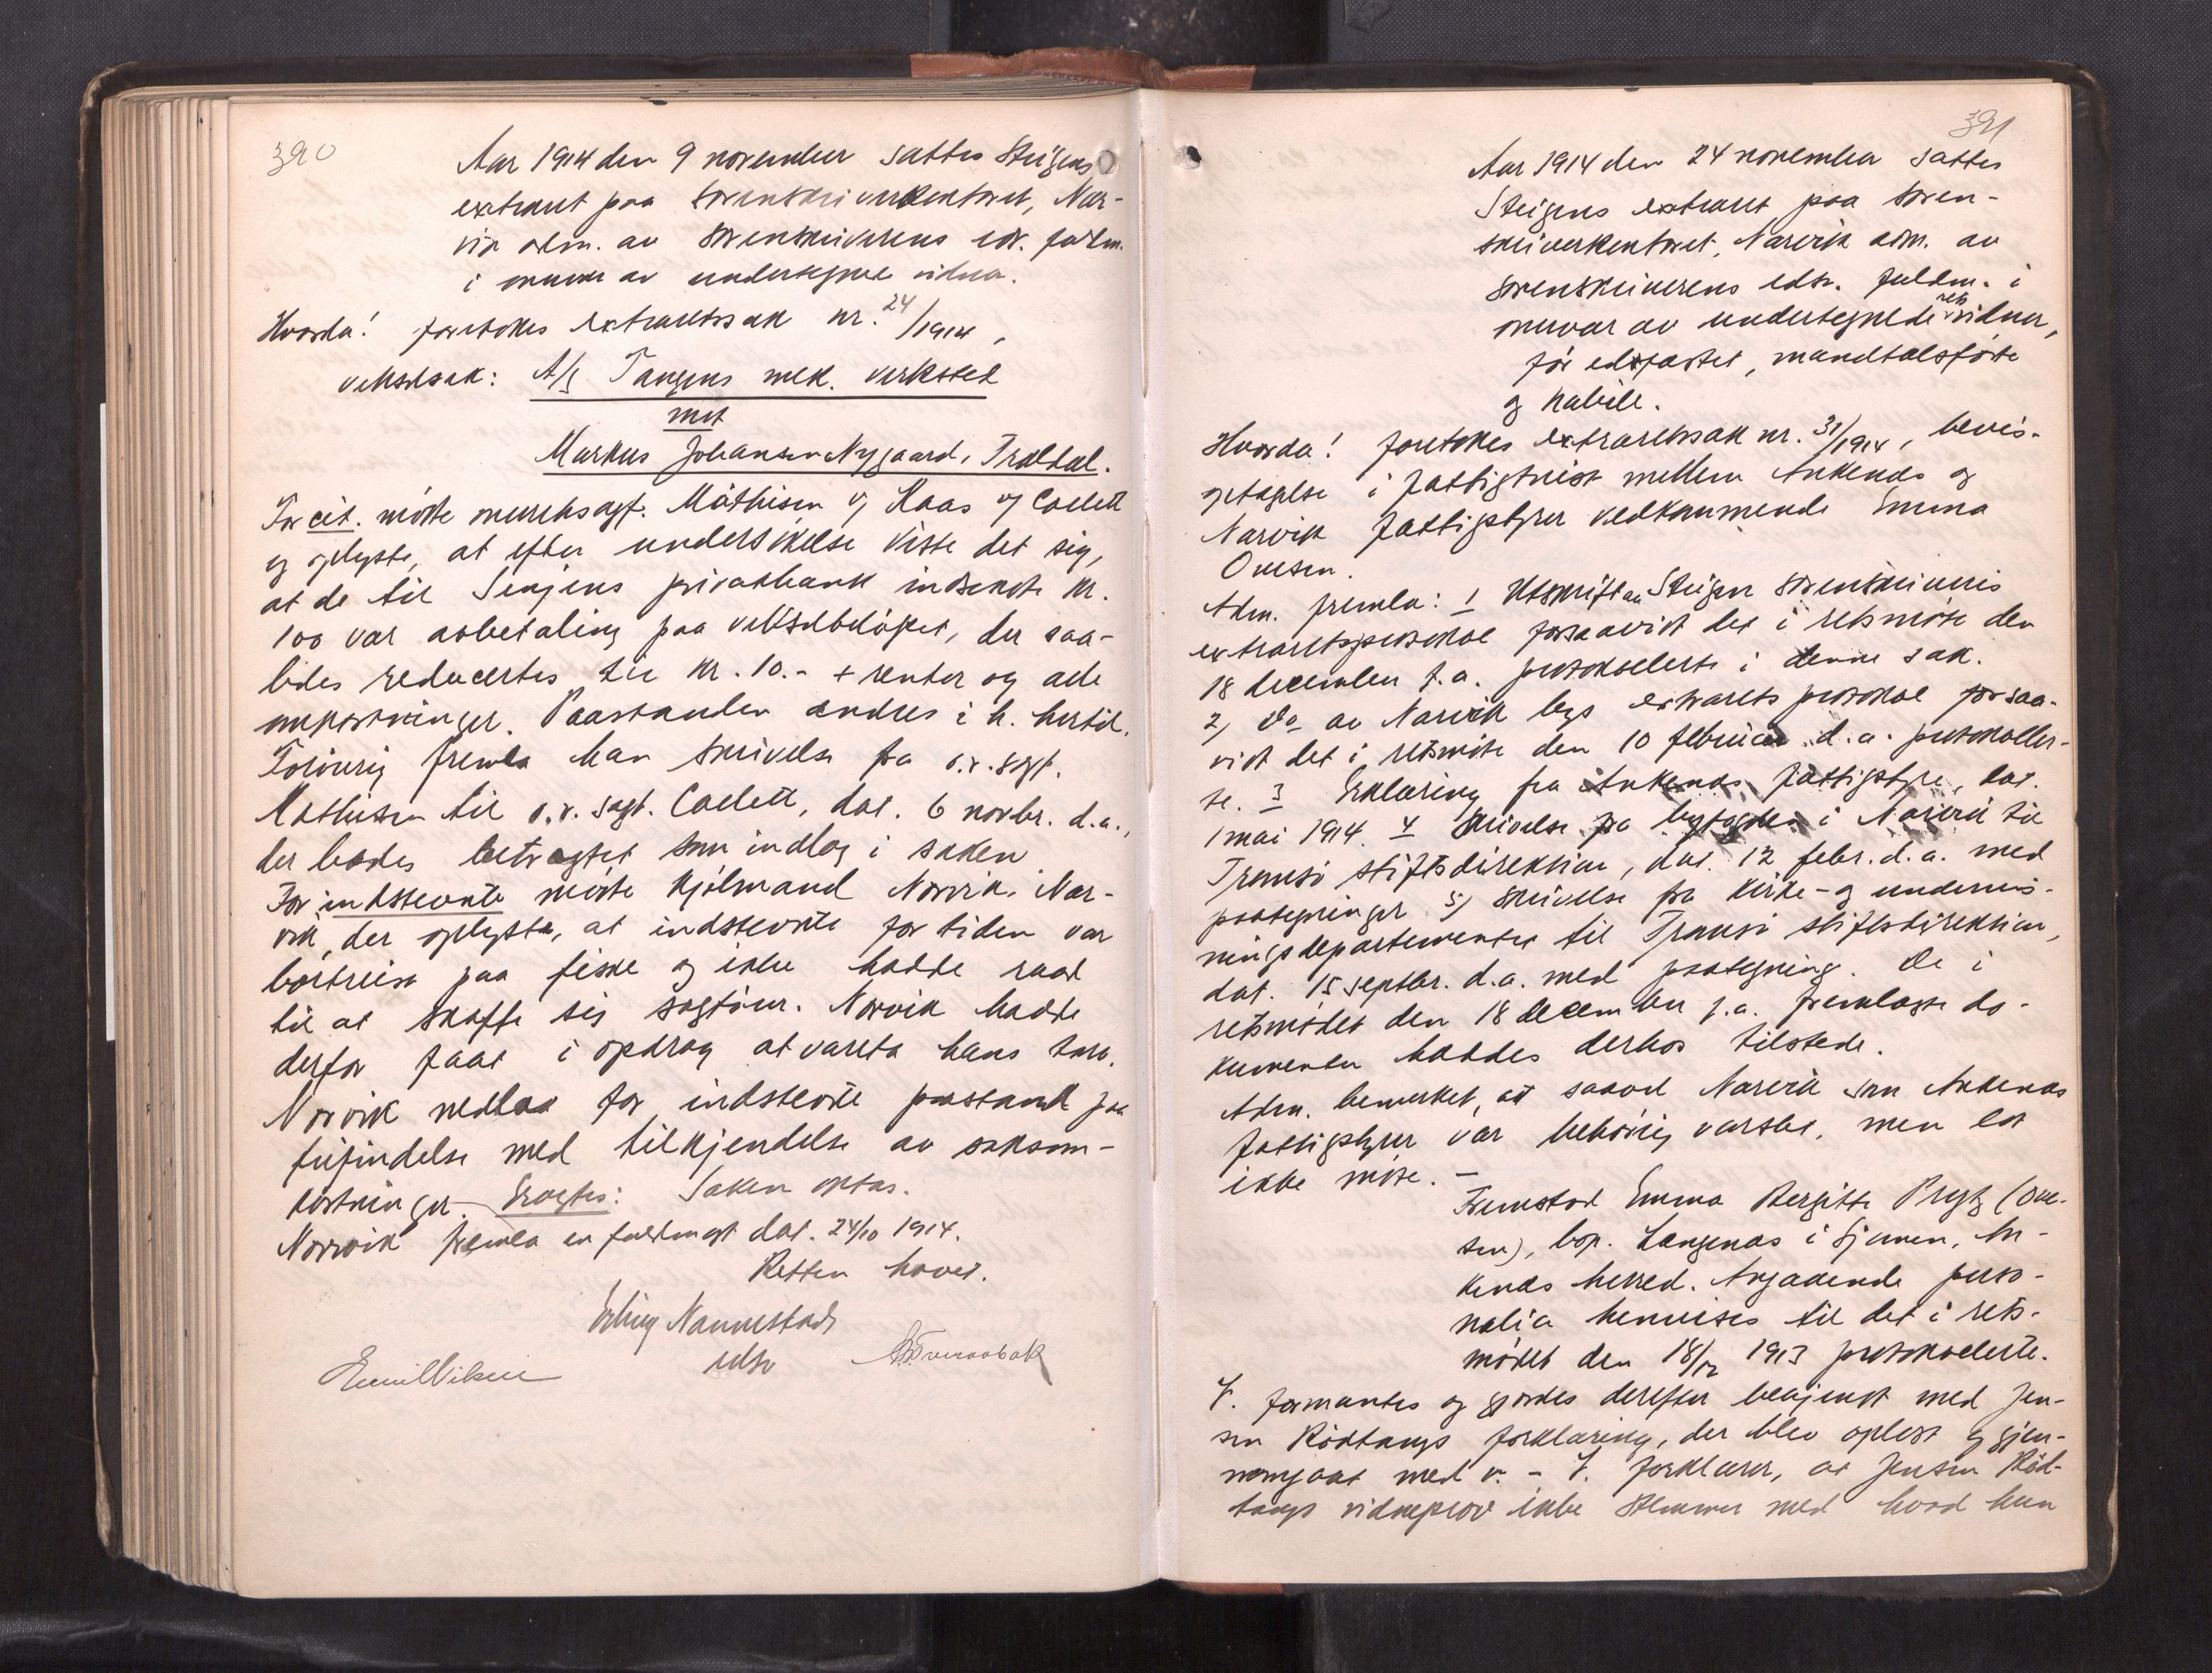 390
Aar 1914 den 9 november sattes Steigens
extraret paa sorenskriverkontoret, Nar-
vik adm. av sorenskriverens edv. fuldm.
i overvær av undertegnede vidner.
Hvorda! foretokes extraretssak nr. 24/1914,
vekselsak: A/S Tangens mek. verksted
mot
Markus Johansen Nygaard, Traldal.
For cit. møtte overretssagf. Mathisen og Kaas og Collett
og oplyste, at efter undersøkelse viste det sig,
at de til Senjens privatbank indsendte kr.
100 var avbetaling paa vekselbeløpet, der saa-
ledes reducertes til kr. 10.- + renter og alle
omkostninger. Paastanden ændres i h. hertil.
Forøvrig fremla han skrivelse fra o.r.sagf.
Mathisen til o.r.sagf. Collett, dat. 6 novbr. d.a.,
der bedes betragtet som indlæg i saken
For indstevnte møtte Hjelmand Norvik, Nar-
vik, der oplyste, at indstevnte for tiden var
bortreist paa fiske og ikke hadde raad
til at skaffe sig sagfører. Norvik hadde
derfor faat i opdrag at vareta hans tarv.
Norvik nedla for indstevnte paastand paa
frifindelse med tilkjendelse av saksom-
kostninger. Eragtes: Saken optas.
Norvik fremla en fuldmagt dat. 24/10 1914.
Retten hævet.
Erling Nannestad
edsv
Emil Nilsen
391
Aar 1914 den 24 november sattes
Steigens extraret paa soren-
skriverkontoret, Narvik adm. av
sorenskriverens edsv. fuldm. i
overvær av undertegnede retsvidner,
før edfæstet, mandtalsførte
og habile.
Hvorda! foretokes extraretssak nr. 31/1914, bevis-
optagelse i fattigtvist mellem Ankenes og
Narvik fattigstyrer vedkommende Emma
Ovesen.
Adm. fremla: 1 Utskrift av Steigen sorenskriveris
extraretsprotokol forsaavidt det i retsmøte den
18 december f.a. protokollerte i denne sak.
2) Do av Narvik bys extraretsprotokol forsaa-
vidt det i retsmøte den 10 februar d.a. protokoller-
te. 3 Erklæring fra Ankenes fattigstyre, dat.
1 mai 1914. 4 Skrivelse fra byfogden i Narvik til
Tromsø stiftsdirektion, dat. 12 febr. d.a. med
paategninger 5) skrivelse fra kirke- og undervis-
ningsdepartementet til Tromsø stiftsdirektion,
dat. 15 septbr. d.a. med paategning. De i
retsmødet den 18 december f.a. fremlagte do-
kumenter haddes derhos tilstede.
Adm. bemerket, at saavel Narvik som Ankenes
fattigstyrer var behørig varslet, men lot
ikke møte. –
Fremstod Emma Bergitte Prytz (Ove-
sen), bop. Langenæs i Sjomen, An-
kenes herred. Angaaende perso-
nalia henvises til det i rets-
mødet den 18/12 1913 protokollerte.
V. formantes og gjordes derefter bekjendt med Jen-
sen Rødtangs forklaring, der blev oplest og gjen-
nemgaat med v. – V. forklarer, at Jensen Rød-
tangs vidneprov ikke stemmer med hvad hun